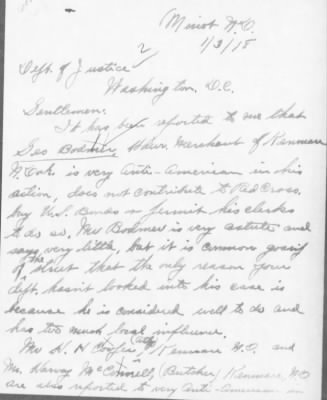 Minot N.D.
1/3/18
Dept. of Justice
Washington, D.C.
Gentlemen.
It has been reported to me that
Geo Bodmer, Merchant of Kenmare
N.Dak. is very Anti-American in his
action, does not contribute to Red Cross,
buy U.S. Bonds or permit his clerks
to do so, Mr Bodmer is very astute and
says very little, but it is common gossip
of the street that the only reason your
dept. hasn't looked into his case is
because he is considered well to do and
has too much local influence.
Mr H. N Cooper (atty), Kenmare N.D. and
Mr. Harvey McConnell, (Butcher) Kenmare, N.D
are also reported to very Anti-American in